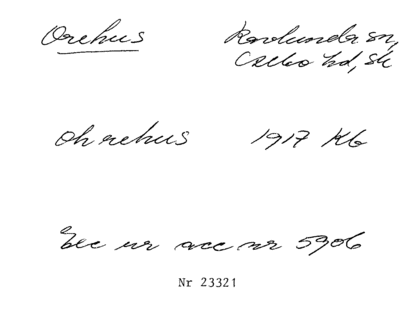 Orehus Ravlunda sn,
Albo hd, sk
oh rehus 1917 Kb
Exc ur acc nr 5906
Nr 23321